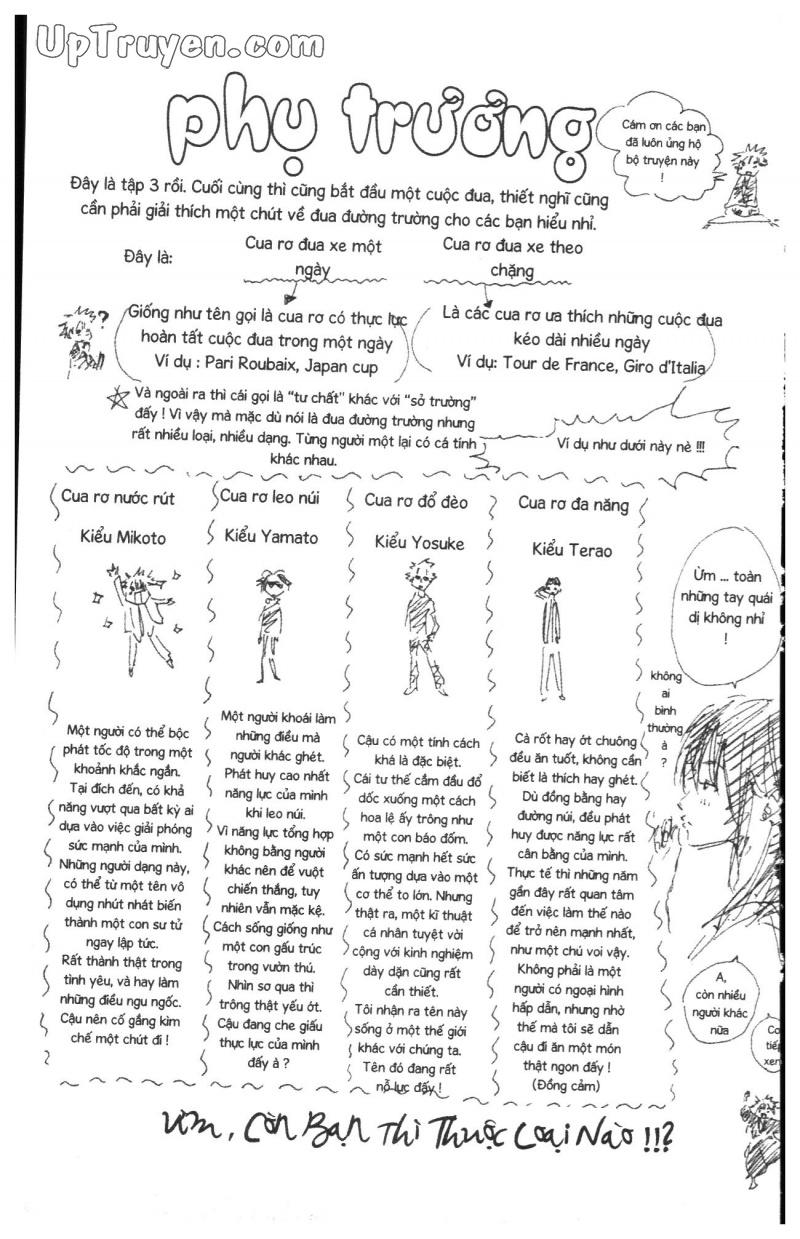 UpTruyen.com
phụ trương
Cám ơn các bạn
đã luôn ủng hộ
bộ truyện này
!
Đây là tập 3 rồi. Cuối cùng thì cũng bắt đầu một cuộc đua, thiết nghĩ cũng
cần phải giải thích một chút về đua đường trường cho các bạn hiểu nhỉ.
Đây là:
Cua rơ đua xe một
ngày
Cua rơ đua xe theo
chặng
?
Giống như tên gọi là cua rơ có thực lực
hoàn tất cuộc đua trong một ngày
Ví dụ : Pari Roubaix, Japan cup
Là các cua rơ ưa thích những cuộc đua
kéo dài nhiều ngày
Ví dụ: Tour de France, Giro d'Italia
Và ngoài ra thì cái gọi là “tư chất” khác với “sở trường”
đấy ! Vì vậy mà mặc dù nói là đua đường trường nhưng
rất nhiều loại, nhiều dạng. Từng người một lại có cá tính
khác nhau.
Ví dụ như dưới này nè !!!
Cua rơ nước rút
Kiểu Mikoto
Một người có thể bộc
phát tốc độ trong một
khoảnh khắc ngắn.
Tại đích đến, có khả
năng vượt qua bất kỳ ai
dựa vào việc giải phóng
sức mạnh của mình.
Những người dạng này,
có thể từ một tên vô
dụng nhút nhát biến
thành một con sư tử
ngay lập tức.
Rất thành thật trong
tình yêu, và hay làm
những điều ngu ngốc.
Cậu nên cố gắng kìm
chế một chút đi !
Cua rơ leo núi
Kiểu Yamato
Một người khoái làm
những điều mà
người khác ghét.
Phát huy cao nhất
năng lực của mình
khi leo núi.
Vì năng lực tổng hợp
không bằng người
khác nên để vuột
chiến thắng, tuy
nhiên vẫn mặc kệ.
Cách sống giống như
một con gấu trúc
trong vườn thú.
Nhìn sơ qua thì
trông thật yếu ớt.
Cậu đang che giấu
thực lực của mình
đấy à ?
Cua rơ đổ đèo
Kiểu Yosuke
Cậu có một tính cách
khá là đặc biệt.
Cái tư thế cắm đầu đổ
dốc xuống một cách
hoa lệ ấy trông như
một con báo đốm.
Có sức mạnh hết sức
ấn tượng dựa vào một
cơ thể to lớn. Nhưng
thật ra, một kĩ thuật
cá nhân tuyệt vời
cộng với kinh nghiệm
dày dặn cũng rất
cần thiết.
Tôi nhận ra tên này
sống ở một thế giới
khác với chúng ta.
Tên đó đang rất
nỗ lực đấy !
Cua rơ đa năng
Kiểu Terao
Cà rốt hay ớt chuông
đều ăn tuốt, không cần
biết là thích hay ghét.
Dù đồng bằng hay
đường núi, đều phát
huy được năng lực rất
cân bằng của mình.
Thực tế thì những năm
gần đây rất quan tâm
đến việc làm thế nào
để trở nên mạnh nhất,
như một chú voi vậy.
Không phải là một
người có ngoại hình
hấp dẫn, nhưng nhờ
thế mà tôi sẽ dẫn
cậu đi ăn một món
thật ngon đấy !
(Đồng cảm)
Ừm ... toàn
những tay quái
dị không nhỉ
!
không
ai
bình
thường
à
?
A,
còn nhiều
người khác
nữa
Ừm, Còn Bạn Thì Thuộc Loại Nào !!!?